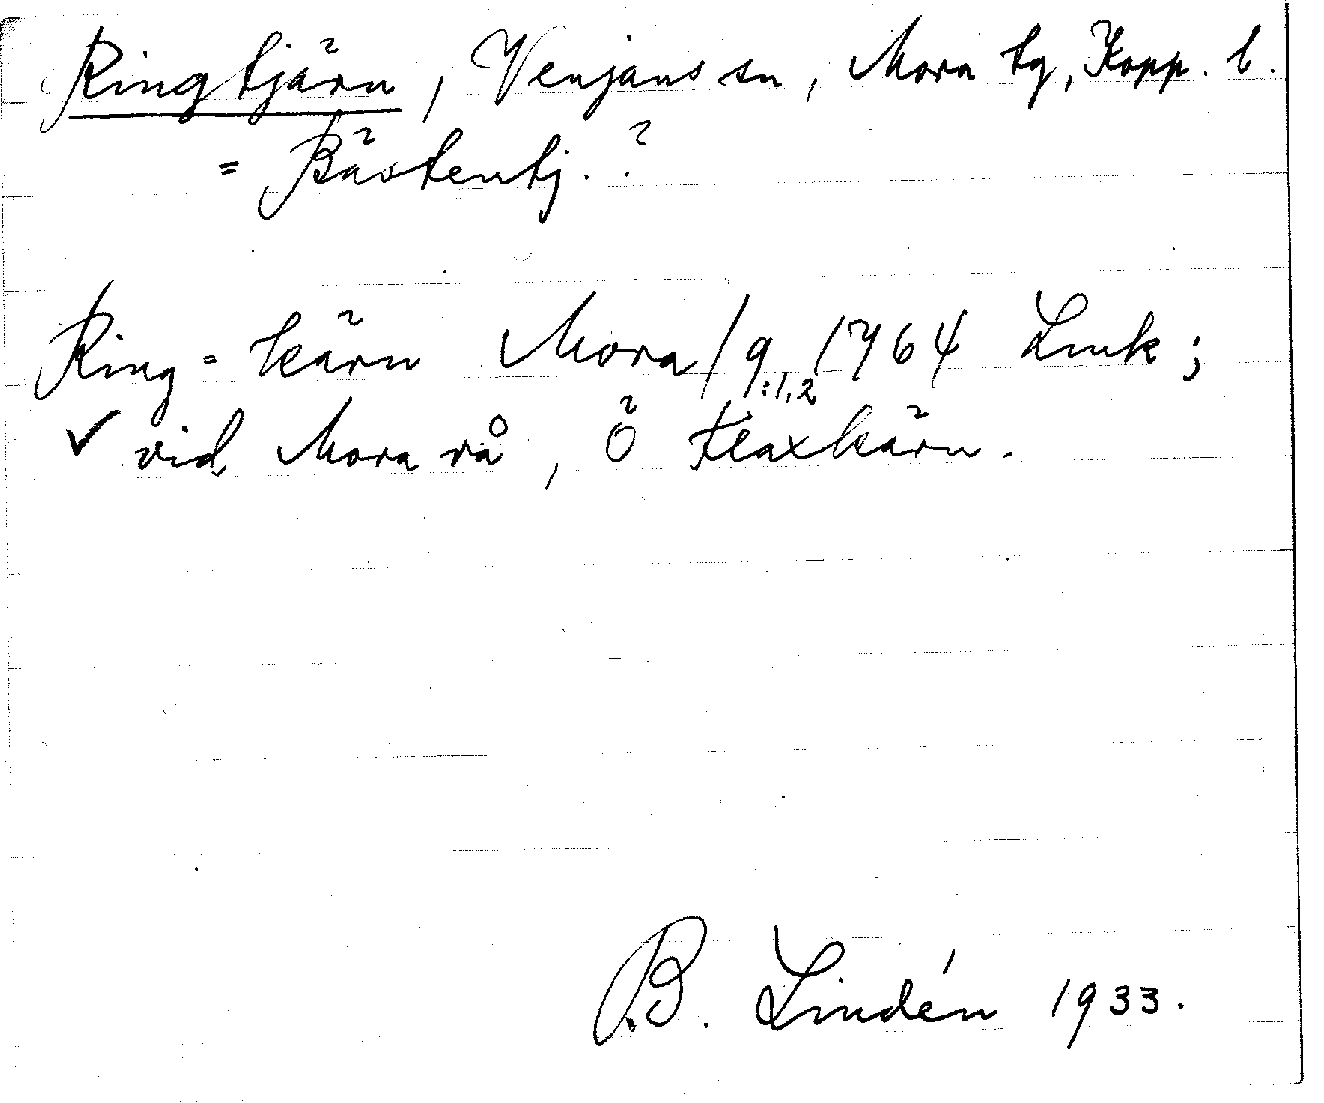 Ringtjärn, Venjans sn, Mora tg, Kopp. l.
= Bästentj. ?
Ring-kärn Mora/9:1,2/1764 Lmk;
✓ vid Mora rå, Ö Flaxkärn.
B. Lindén 1933.